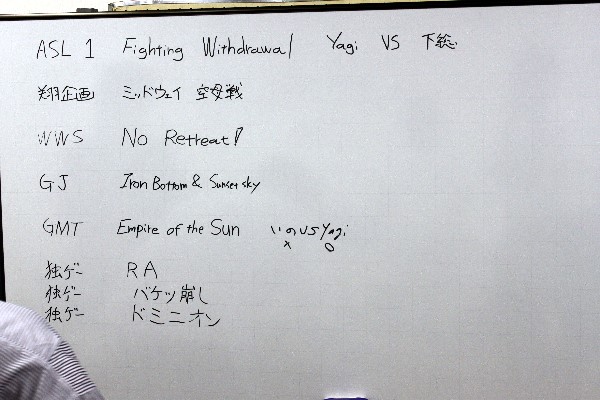 ASL 1 Fighting Withdrawal Yagi VS 下総
翔企画 ミッドウェイ 空母戦
WWS No Retreat!
GJ Iron Bottom & Sunset sky
GMT Empire of the Sun いのvsYagi
× ○
独ゲー RA
独ゲー バケツ崩し
独ゲー ドミニオン